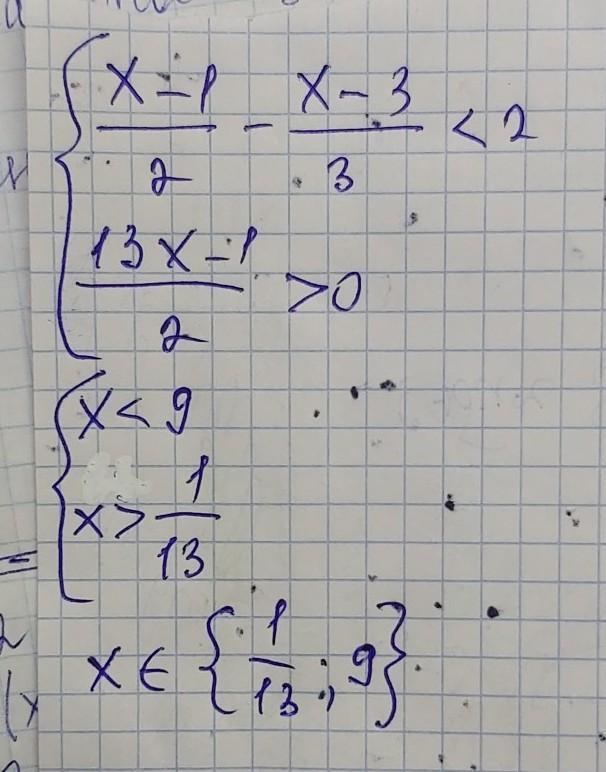 { (x-1)/2 - (x-3)/3 < 2
{ (13x-1)/2 >0
{ x< 9
{ x> 1/13
x ∈ {1/13; 9}